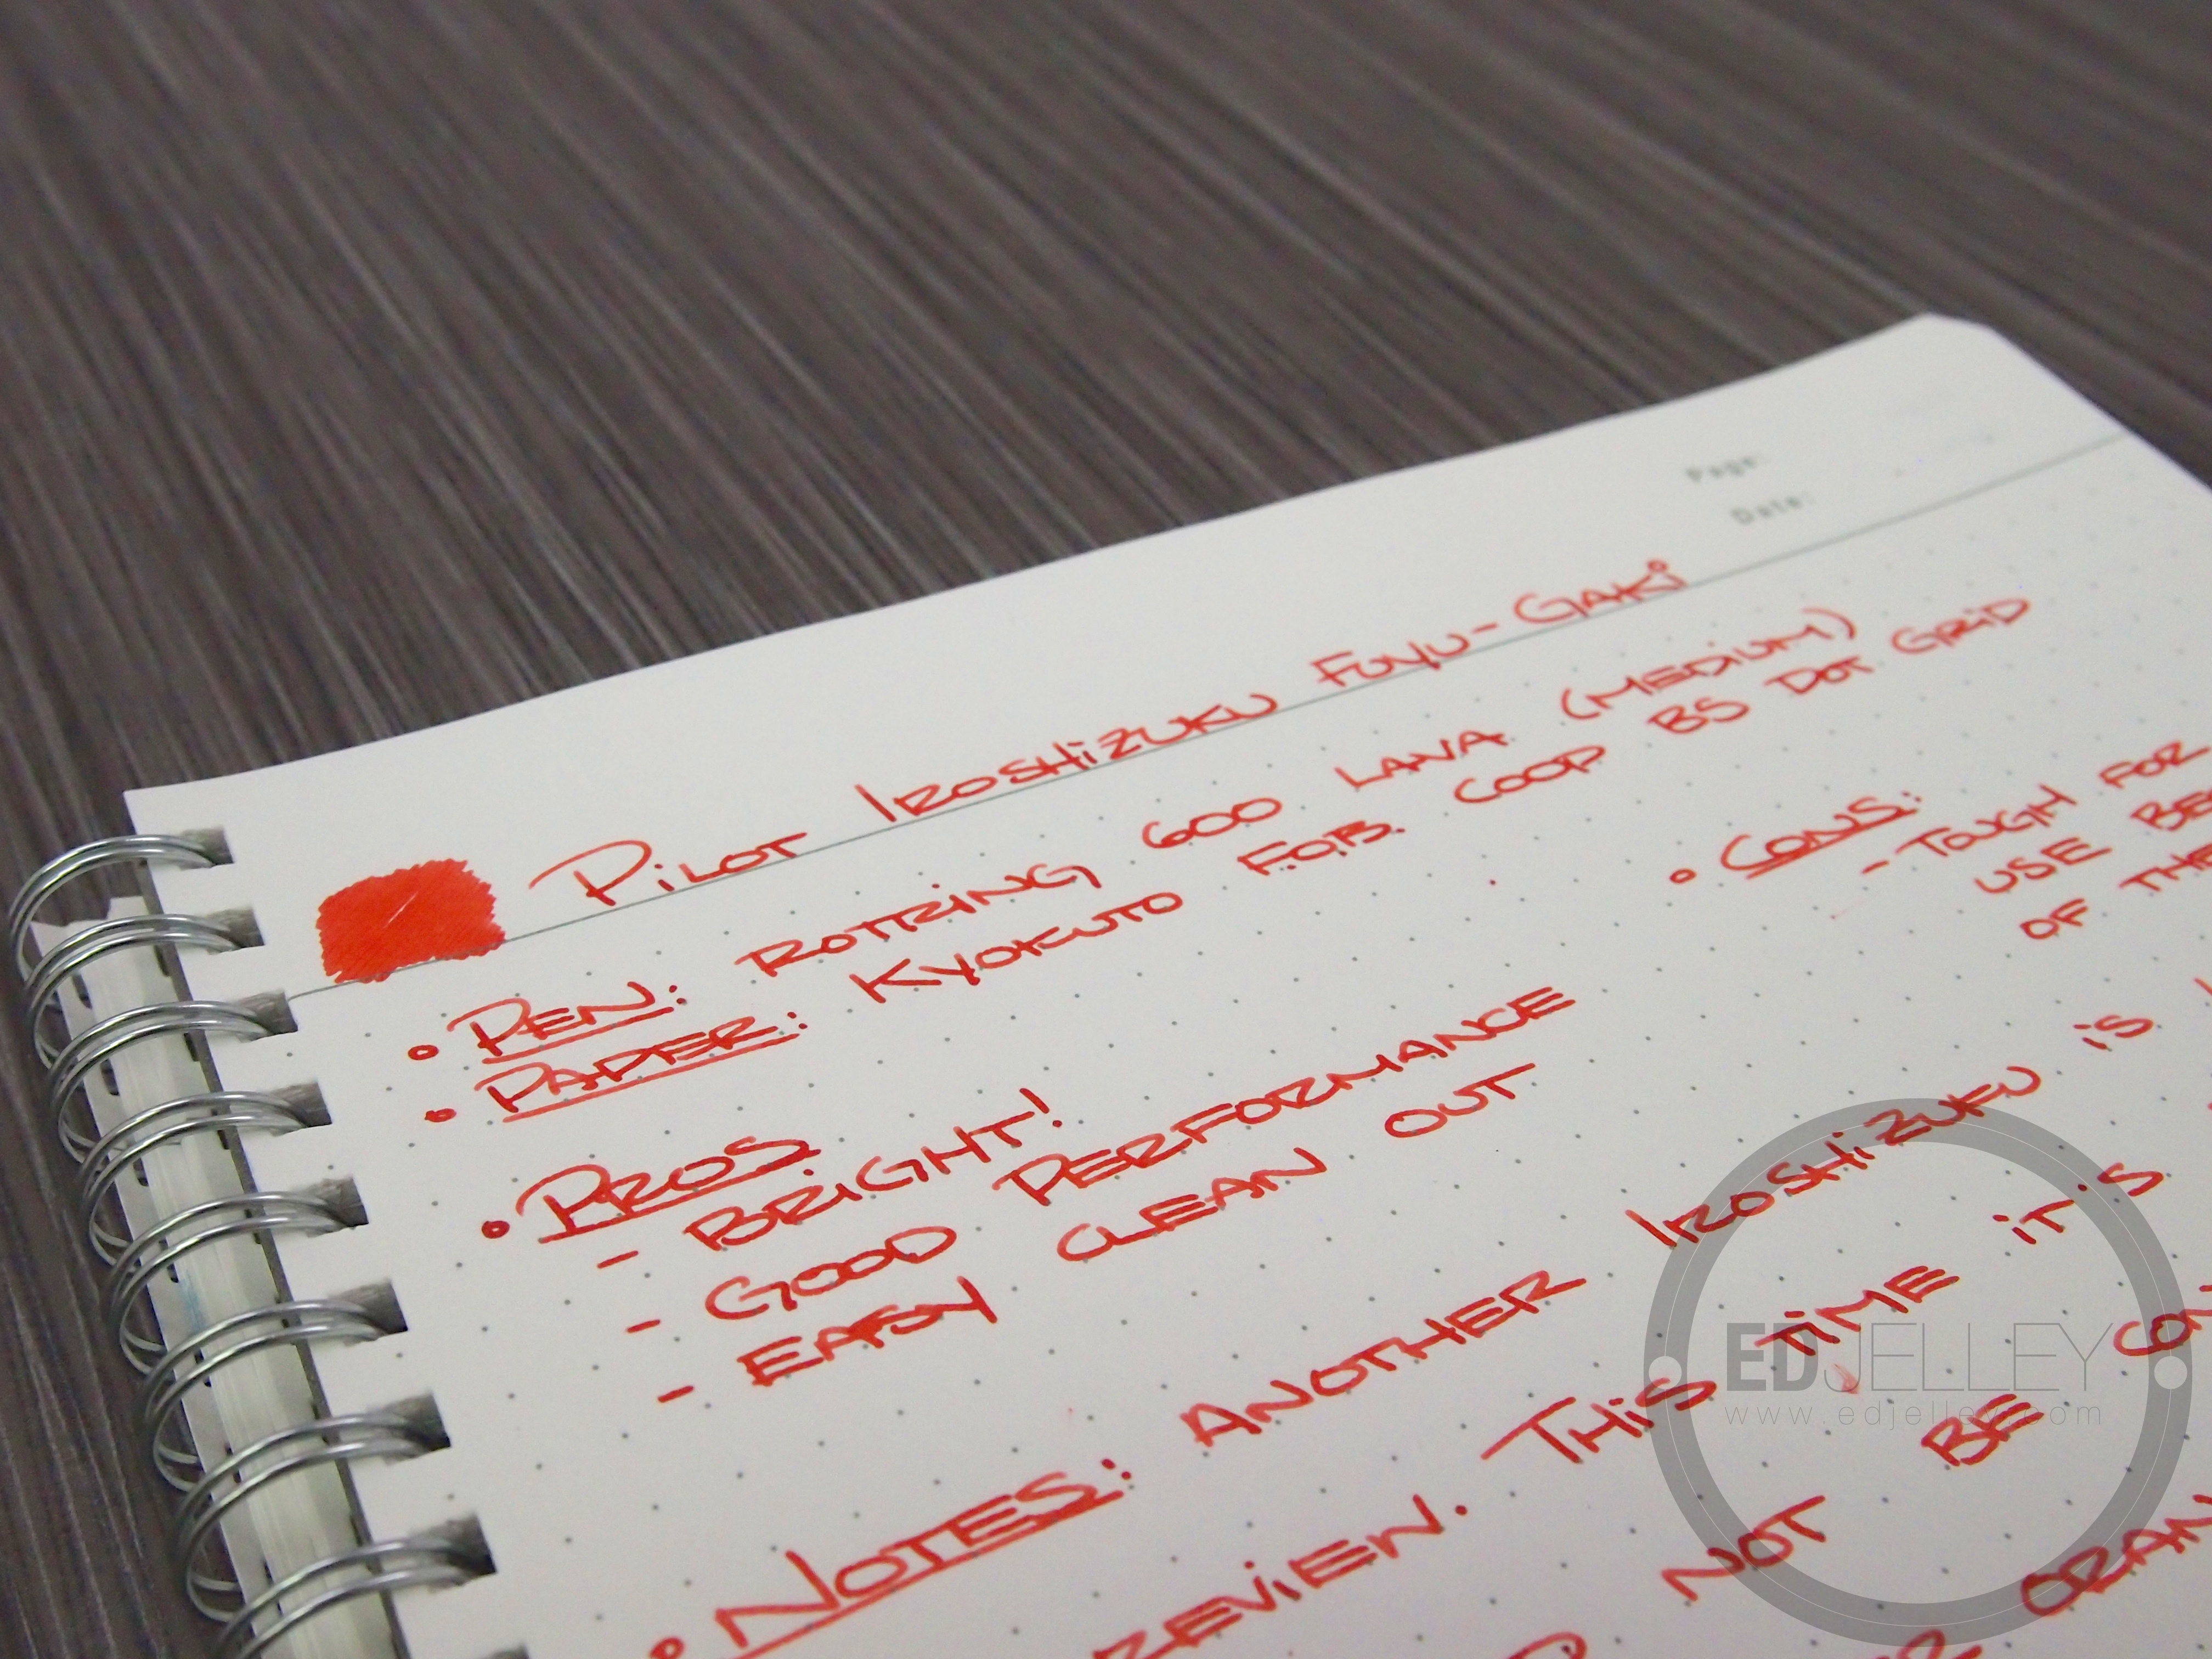 Page:
Date:
PILOT IROSHIZUKU FUYU-GAKI
• PEN: ROTRING 600 LAVA (MEDIUM)
• PAPER: KYOKUTO F.O.B. COOP B5 DOT GRID
• PROS
- BRIGHT!
- GOOD PERFORMANCE
- EASY CLEAN OUT
• CONS:
- TOUGH FOR
USE
OF
• NOTES: ANOTHER IROSHIZUKU IS
REVIEW. THIS TIME IT'S
NOT BE
EDJELLEY
www.edjelley.com